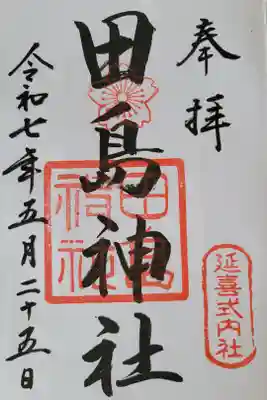 奉拝
田島神社
延喜式内社
田島神社
令和七年五月二十五日